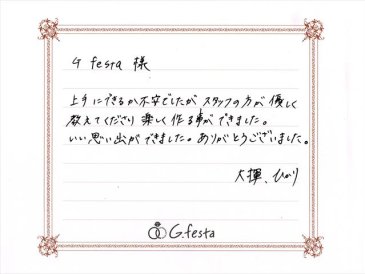 G festa 様
上手にできるか不安でしたが スタッフの方が 優しく
教えてくださり 楽しく 作る事ができました。
いい思い出ができました。ありがとうございました。
大揮、ひかり
G.festa